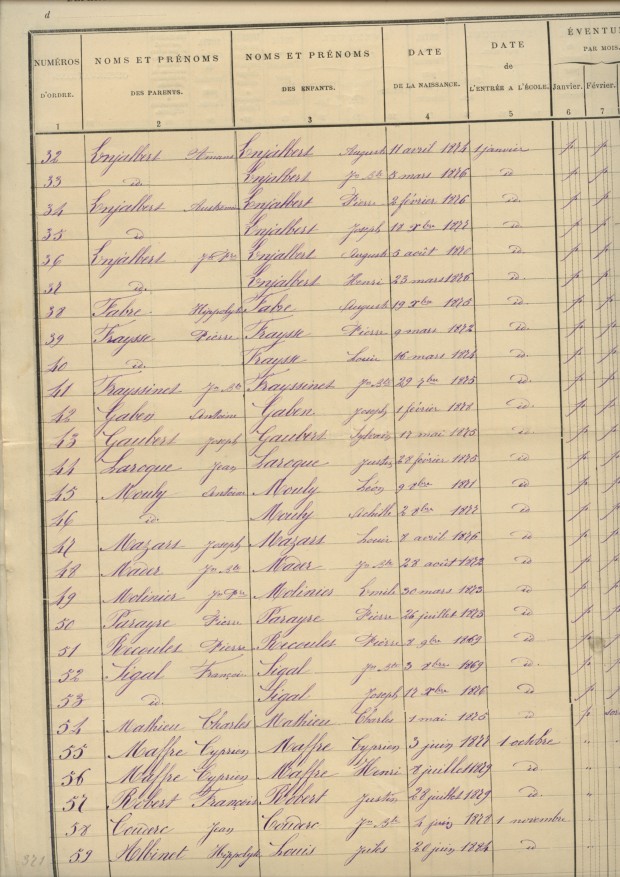 d
NUMÉROS D'ORDRE. NOMS ET PRÉNOMS DES PARENTS. NOMS ET PRÉNOMS DES ENFANTS. DATE DE LA NAISSANCE. DATE de L'ENTRÉE A L'ÉCOLE. ÉVENTU PAR MOIS. Janvier. Février.
1 2 3 4 5 6 7
32 Enjalbert Enjalbert August 11 avril 1874 1 janvier p p
33 id. Enjalbert Jn Bte 5 mars 1876 id p p
34 Enjalbert Enjalbert Pierre 2 février 1876 id p p
35 id Enjalbert Joseph 18 xbre id p p
36 Enjalbert Enjalbert August 5 août id p p
37 id. Enjalbert Henri 23 mars 1876 id. p p
38 Fabre Hippolyte Fabre August 19 xbre 1875 id. p p
39 Fraysse Pierre Fraysse Pierre 9 mars 1872 id. p p
40 id. Fraysse Louis 16 mars id. p p
41 Frayssinet Jn Bte Frayssinet Jn Bte 29 7bre 1875 id. p p
42 Gaben Antoine Gaben Joseph 1 février id. p p
43 Gaubert Joseph Gaubert Sylvain 17 mai 1875 id. p p
44 Laroque Jean Laroque Justin 28 février 1875 id. p p
45 Mouly Antoine Mouly Léon 9 1871 id p p
46 id. Mouly Achille 2 1877 id p p
47 Mazars Joseph Mazars Louis 8 avril 1876 id p p
48 Jn Bte 28 août 1872 id. p p
49 Molinier Molinier Emile 30 mars 1873 id p p
50 Parayre Pierre Parayre Pierre 26 juillet 1873 id p p
51 Recoules Pierre Recoules Pierre 8 9bre 1869 id p p
52 Sigal François Sigal Jn Bte 3 1869 id. p p
53 id. Sigal Joseph 17 xbre 1876 id p p
54 Mathieu Charles Mathieu Charles 1 mai 1875 id p
55 Maffre Cyprien Maffre Cyprien 3 juin 1877 1 octobre " "
56 Maffre Cyprien Maffre Henri 8 juillet 1879 id. " "
57 Robert François Robert Justin 28 juillet 1879 id. " "
58 Couderc Jean Couderc Jn Bte 4 juin 1878 1 novembre " "
59 Albinet Hippolyte Louis Jules 20 juin id. " "
321